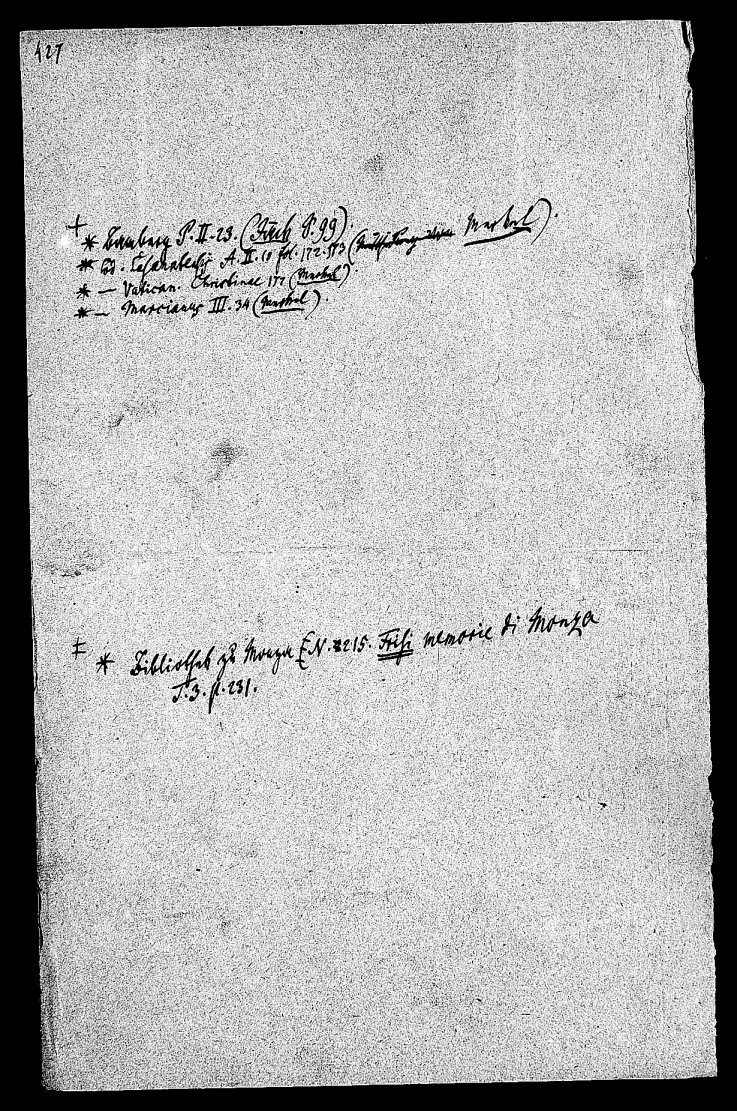 427
+
* Bamberg P. II. 23. (Jäck S. 99).
* Cod. Casanatensis A. II. 10 fol. 172. 173 (Merkel).
* — Vatican. Christinae 177 (Merkel).
* — Marcianus III. 34 (Merkel).
* Bibliothek zu Monza N. 215. Frisi memorie di Monza
T. 3. p. 231.